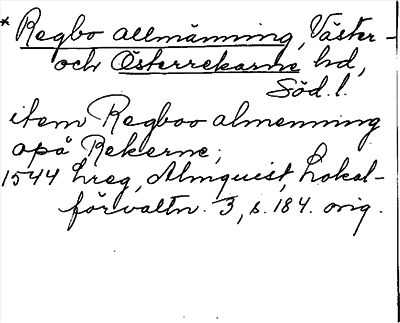 * Regbo allmänning, Väster-
och Österrekarne hd,
Söd. l.
item Regboo almenning
apå Rekerne;
1544 hreg, Almquist, Lokal-
förvaltn. 3, s. 184. orig.